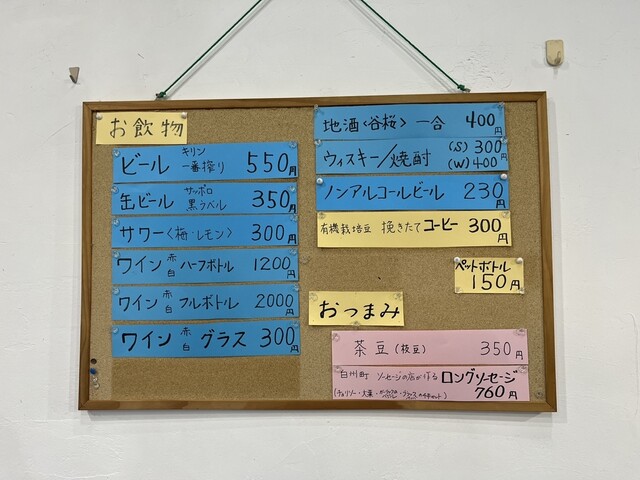 お飲物
ビール キリン 一番搾り 550円
缶ビール サッポロ 黒ラベル 350円
サワー〈梅・レモン〉 300円
ワイン 赤 白 ハーフボトル 1200円
ワイン 赤 白 フルボトル 2000円
ワイン 赤 白 グラス 300円
地酒〈谷桜〉 一合 400円
ウィスキー/焼酎 (S) 300円 (W) 400
ノンアルコールビール 230円
有機栽培豆 挽きたて コーヒー 300円
ペットボトル
150円
おつまみ
茶豆(枝豆) 350円
白州町 ソーセージの店が作る ロングソーセージ
(チョリソー・大葉・ 760円